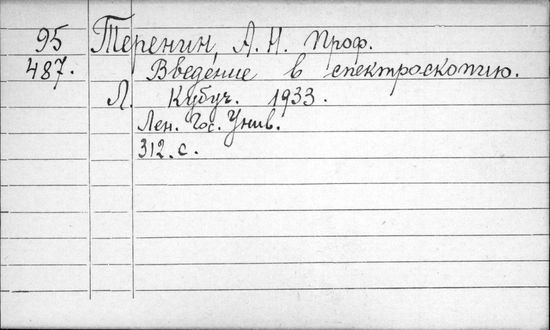 95 Теренин, А. Н. Проф.
487. Введение в спектроскопию.
Л. Кубуч. 1933.
Лен. Гос. Унив.
312. с.